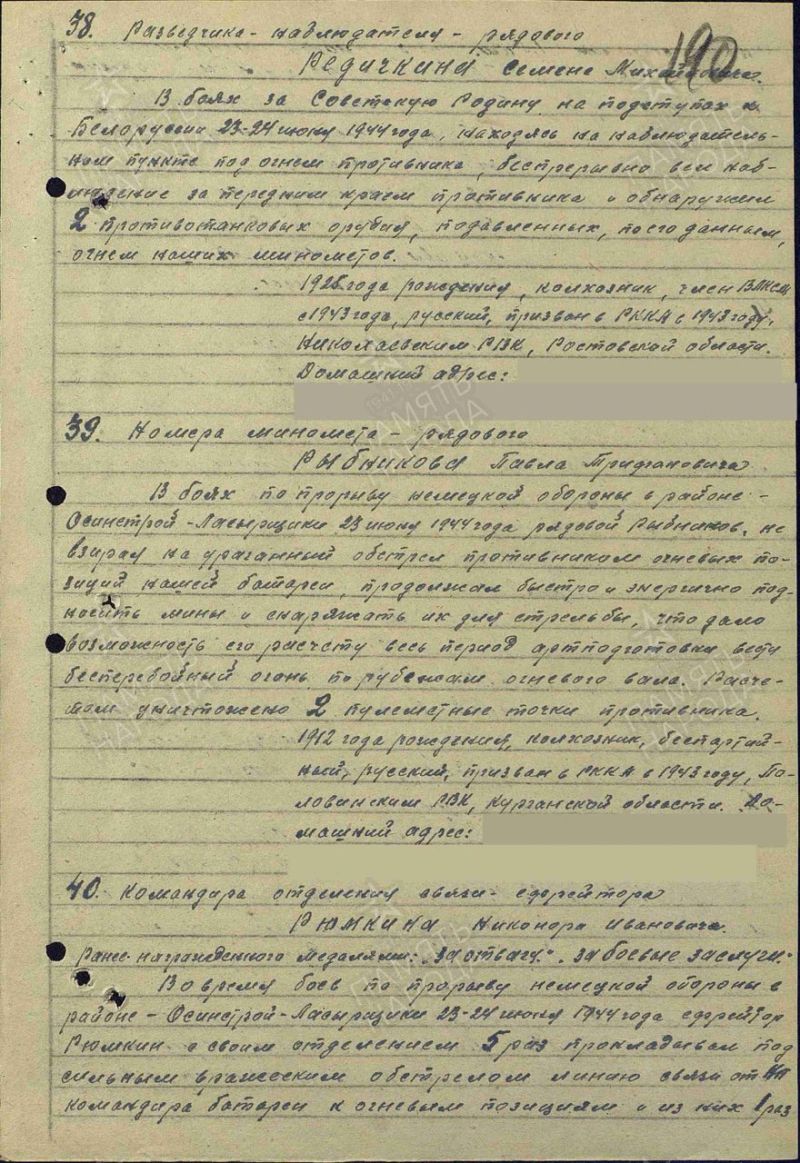 190
38. Разведчика - наблюдателя - рядового
Редичкина Семена Михайловича.
В боях за Советскую Родину на подступах к
Белоруссии 23-24 июня 1944 года, находясь на наблюдатель-
ном пункте под огнем противника, беспрерывно вел наб-
людение за передним краем противника и обнаружил
2 противотанковых орудия, подавленных, по его данным,
огнем наших минометов.
1925 года рождения, колхозник, член ВЛКСМ
с 1943 года, русский, призван в РККА с 1943 году,
Николаевским РВК, Ростовской области.
Домашний адрес:
39. Номера миномета - рядового
Рыбникова Павла Трифановича
В боях по прорыву немецкой обороны в районе -
Осинстрой - Ласырщики 23 июня 1944 года рядовой Рыбников, не
взирая на ураганный обстрел противником огневых по-
зиций нашей батареи, продолжал быстро и энергично под-
носить мины и снаряжать их для стрельбы, что дало
возможность его расчету весь период артподготовки вести
бесперебойный огонь по рубежам огневого вала. Расче-
том уничтожено 2 пулеметные точки противника.
1912 года рождения, колхозник, беспартий-
ный, русский, призван в РККА в 1943 году, По-
ловинским РВК, Курганской области. До-
машний адрес:
40. Командира отделения связи - ефрейтора
Рюмкина Никонора Ивановича.
Ранее награжденного медалями: „За отвагу", „За боевые заслуги".
Во время боев по прорыву немецкой обороны в
районе - Осинстрой - Ласырщики 23-24 июня 1944 года ефрейтор
Рюмкин с своим отделением 5 раз прокладывал под
сильным вражеским обстрелом линию связи от НП
командира батареи к огневым позициям и из них 1 раз